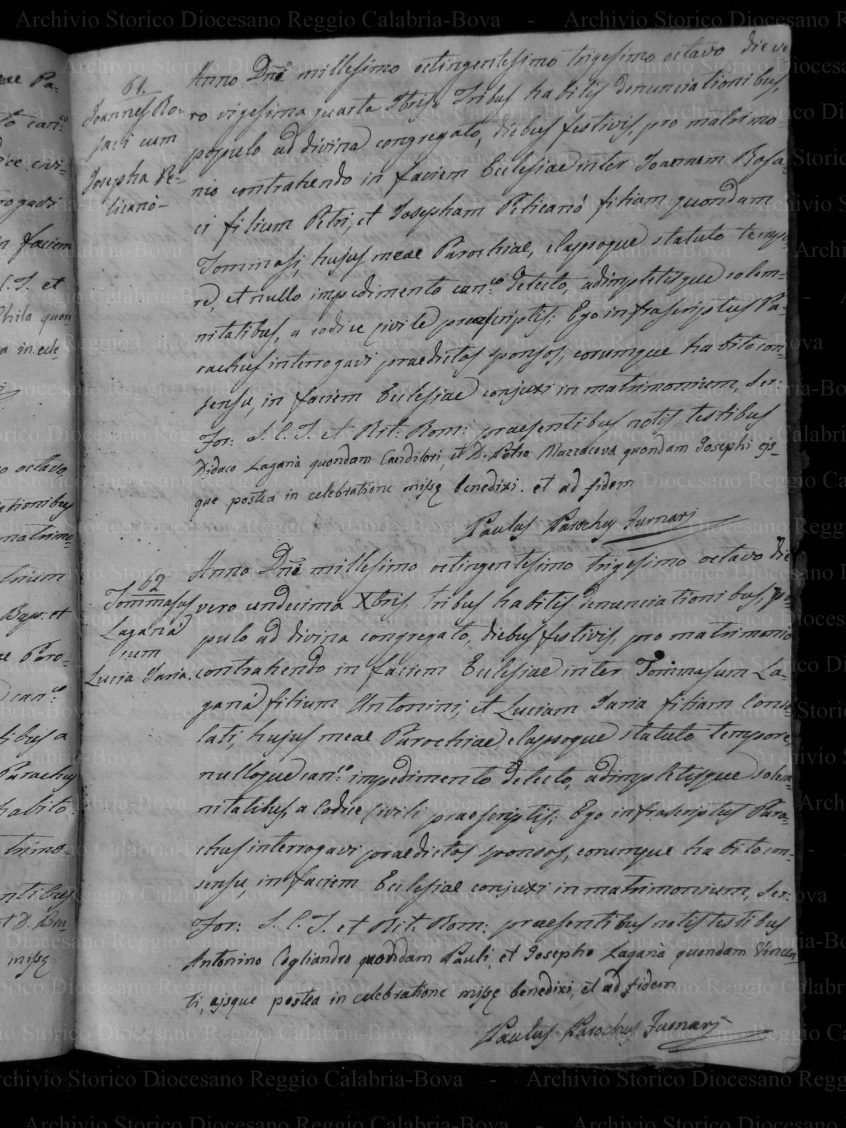 61.
Joannes Ro-
saci cum
Josepha Pe-
licanò
Anno Dnĩ millesimo octingentesimo trigesimo octavo die ve-
ro vigesima quarta 9bris Tribus habitis denunciationibus,
populo ad divina congregato, diebus festivis, pro matrimo
nio contrahendo in faciem Ecclesiae inter Joannem Rosa-
ci filium Petri, et Josepham Pelicanò filiam quondam
Tommasi, hujus meae Parochiae, elapsoque statuto tempo-
re, et nullo impedimento can:co detecto, adimpletisque solem-
nitatibus, a codice civile praescriptis; Ego infrascriptus Pa-
rochus interrogavi praedictos sponsos, eorumque habito con-
sensu, in faciem Ecclesiae conjuxi in matrimonium, ser:
for: S. C. T. et Rit: Rom: praesentibus notis testibus
Didaco Laganà quondam Canditori, et D. Petro Mazzacova quondam Josephi ejs-
que postea in celebratione missę benedixi. et ad fidem
Paulus Parochus Fumarj
62
Tommasus
Laganà
cum
Lucia Iaria.
Anno Dnĩ millesimo octingentesimo trigesimo octavo die
vero undecima Xbris, tribus habitis denunciationibus, po-
pulo ad divina congregato, diebus festivis, pro matrimonio
contrahendo in faciem Ecclesiae inter Tommasum La-
ganà filium Antonini, et Luciam Iaria filiam Conso-
lati, hujus meae Parochiae elapsoque statuto tempore,
nulloque can:co impedimento detecto, adimpletisque solem-
nitatibus, a Codice Civili praescriptis; Ego infrascriptus Paro-
chus interrogavi praedictos sponsos, eorumque habito con-
sensu, in faciem Ecclesiae conjuxi in matrimonium, ser:
for: S. C. T. et Rit: Rom: praesentibus notis testibus
Antonino Cogliandro quondam Pauli, et Josepho Laganà quondam Vincen-
ti, ejsque postea in celebratione missę benedixi, et ad fidem
Paulus Parochus Fumarj